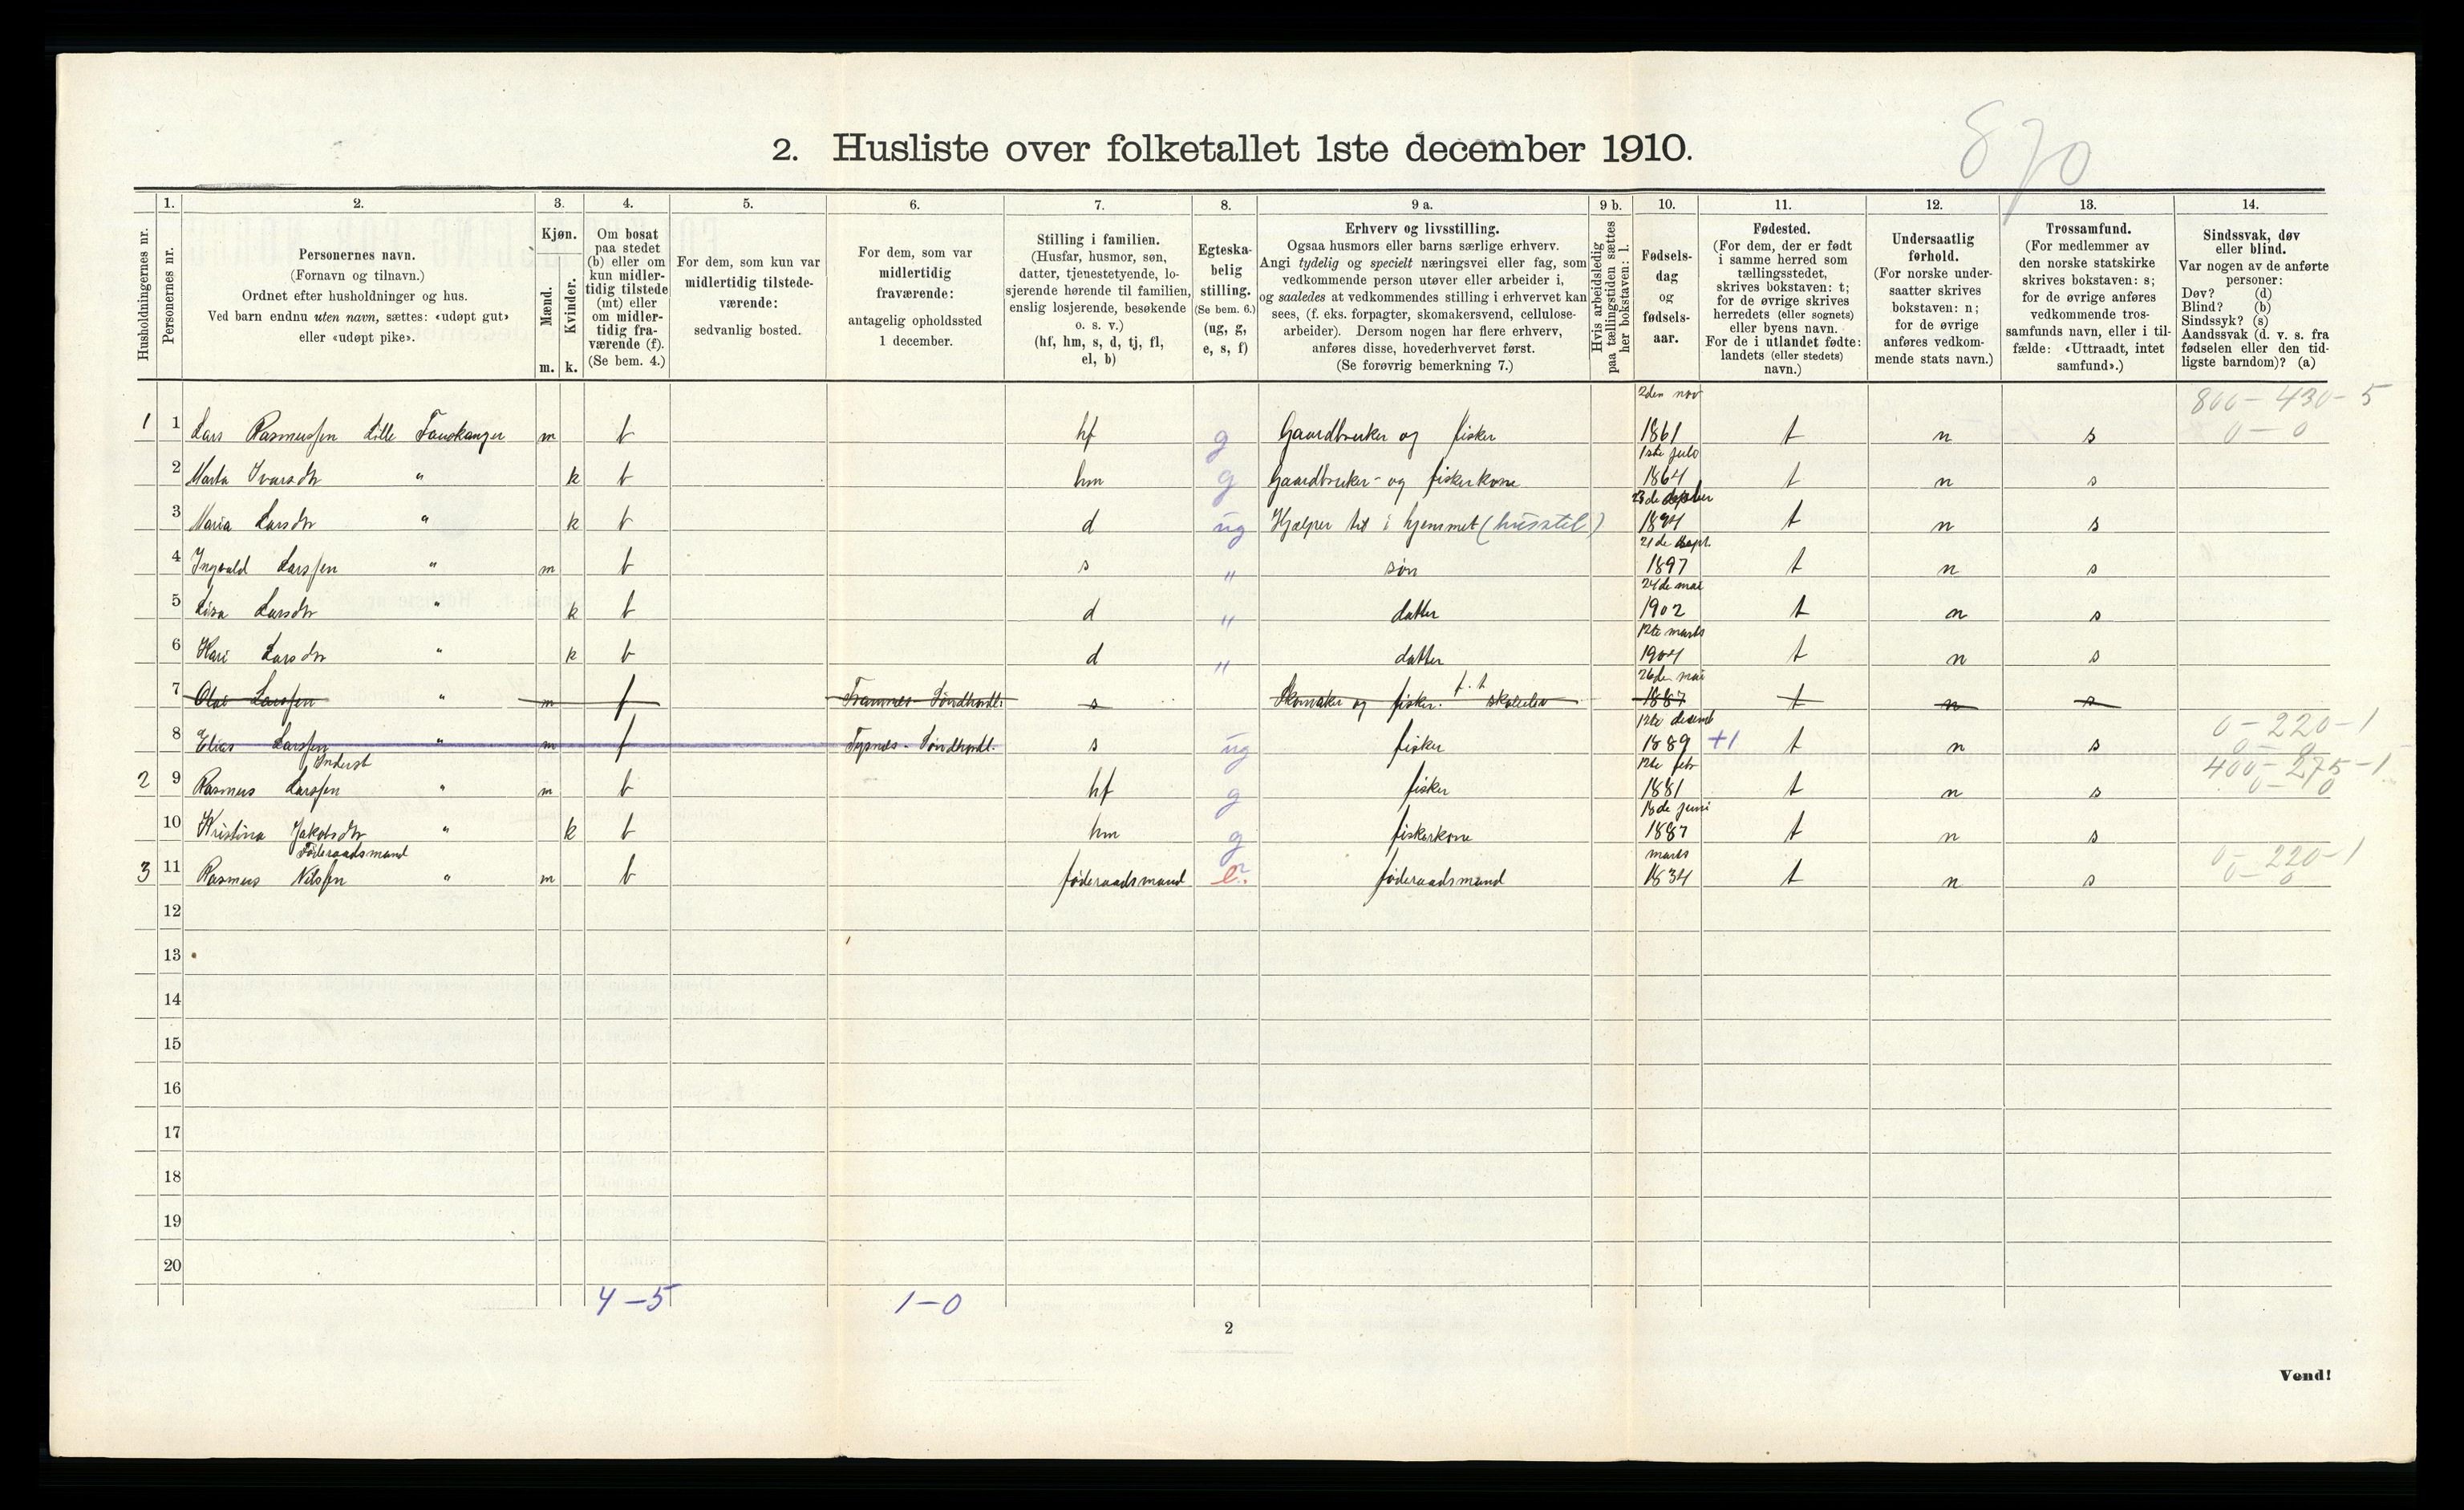 870
2. Husliste over folketallet 1ste december 1910.
Husholdningernes nr.
1.
Personernes nr.
2.
Personernes navn.
(Fornavn og tilnavn.)
Ordnet efter husholdninger og hus.
Ved barn endnu uten navn, sættes: «udøpt gut»
eller «udøpt pike».
3.
Kjøn.
Mænd.
Kvinder.
m. k.
4.
Om bosat
paa stedet
(b) eller om
kun midler-
tidig tilstede
(mt) eller
om midler-
tidig fra-
værende (f).
(Se bem. 4.)
5.
For dem, som kun var
midlertidig tilstede-
værende:
sedvanlig bosted.
6.
For dem, som var
midlertidig
fraværende:
antagelig opholdssted
1 december.
7.
Stilling i familien.
(Husfar, husmor, søn,
datter, tjenestetyende, lo-
sjerende hørende til familien,
enslig losjerende, besøkende
o. s. v.)
(hf, hm, s, d, tj, fl,
el, b)
8.
Egteska-
belig
stilling.
(Se bem. 6.)
(ug, g,
e, s, f)
9 a.
Erhverv og livsstilling.
Ogsaa husmors eller barns særlige erhverv.
Angi tydelig og specielt næringsvei eller fag, som
vedkommende person utøver eller arbeider i,
og saaledes at vedkommendes stilling i erhvervet kan
sees, (f. eks. forpagter, skomakersvend, cellulose-
arbeider). Dersom nogen har flere erhverv,
anføres disse, hovederhvervet først.
(Se forøvrig bemerkning 7.)
9 b.
Hvis arbeidsledig
paa tællingstiden sættes
her bokstaven: l.
10.
Fødsels-
dag
og
fødsels-
aar.
11.
Fødested.
(For dem, der er født
i samme herred som
tællingsstedet,
skrives bokstaven: t;
for de øvrige skrives
herredets (eller sognets)
eller byens navn.
For de i utlandet fødte:
landets (eller stedets)
navn.)
12.
Undersaatlig
forhold.
(For norske under-
saatter skrives
bokstaven: n;
for de øvrige
anføres vedkom-
mende stats navn.)
13.
Trossamfund.
(For medlemmer av
den norske statskirke
skrives bokstaven: s;
for de øvrige anføres
vedkommende tros-
samfunds navn, eller i til-
fælde: «Uttraadt, intet
samfund».)
14.
Sindssvak, døv
eller blind.
Var nogen av de anførte
personer:
Døv? (d)
Blind? (b)
Sindssyk? (s)
Aandssvak (d. v. s. fra
fødselen eller den tid-
ligste barndom)? (a)
2den nov 800-430-5
1 1 Lars Rasmussen Lille Fauskanger m b hf g Gaardbruker og fisker 1861 t n s 0-0
1ste julo
2 Marta Ivarsdtr " k b hm g Gaardbruker- og fiskerkone 1864 t n s
23de
3 Maria Larsdtr " k b d ug Hjælper til i hjemmet (husstel) 1894 t n s
21de sept.
4 Ingvald Larssen " m b s " søn 1897 t n s
24de mai
5 Lisa Larsdtr " k b d " datter 1902 t n s
12te marts
6 Kari Larsdtr " k b d " datter 1904 t n s
26de mai
7 Olai Larssen " m f Søndhordl. s Skomaker og fisker. f.t. skoleelev 1887 t n s
12te decemb 0-220-1
8 Elias Larssen " m f Tysnes - Søndhordl. s ug fisker 1889 +1 t n s 0-0
Inderst 12te febr 400-275-1
2 9 Rasmus Larssen " m b hf g fisker 1881 t n s 0-0
18de juni
10 Kristina Jakobsdtr " k b hm g fiskerkone 1887 t n s
Føderaadsmand marts 0-220-1
3 11 Rasmus Nilssen " m b føderaadsmand e? føderaadsmand 1834 t n s 0-0
12
13
14
15
16
17
18
19
20
4-5 1-0
2
Vend!